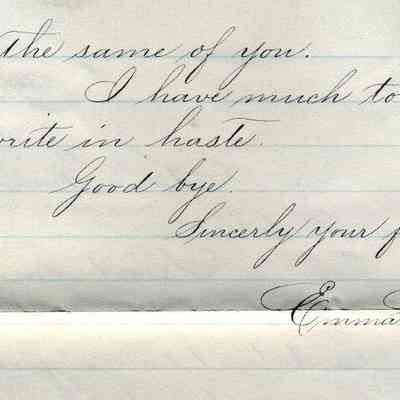 the same of you.
I have much to
write in haste.
Good bye.
Sincerly your f
Emma